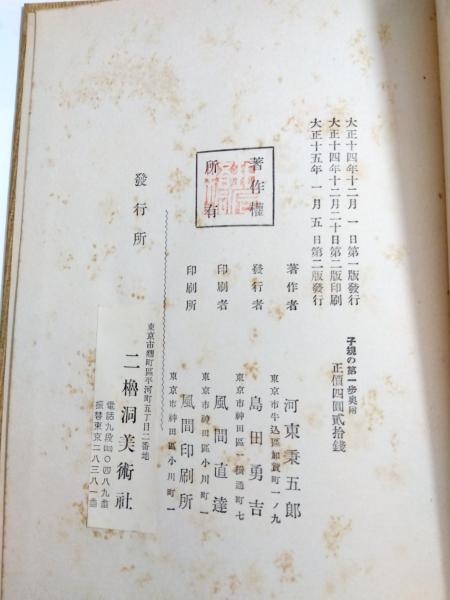 大正十四年十二月一日第一版發行
大正十四年十二月二十日第二版印刷
大正十五年一月五日第二版發行
子規の第一步奧附
正價四圓貳拾錢
著作權
所有
著作者
東京市牛込區加賀町一ノ九
河東秉五郎
發行者
東京市神田區一橋通町七
島田勇吉
印刷者
東京市神田區小川町一
風間直達
印刷所
東京市神田區小川町一
風間印刷所
發行所
東京市麴町區平河町五丁目二番地
二櫓洞美術社
電話九段四〇四八九番
振替東京二八三八一番